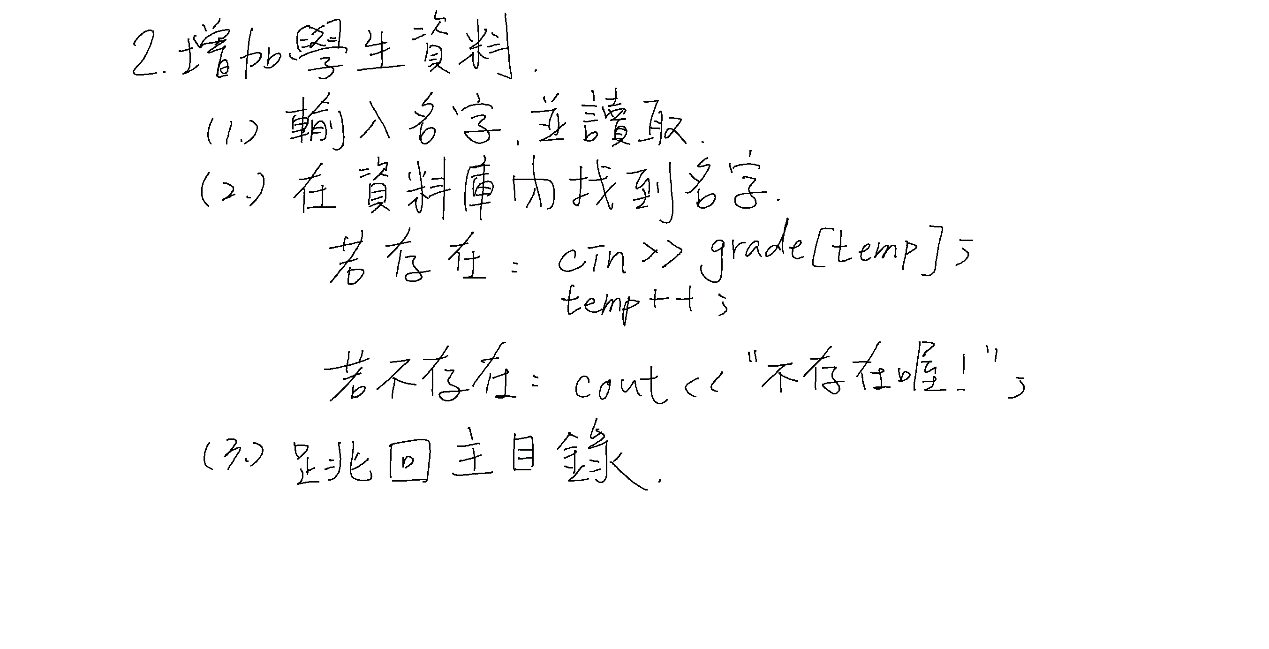 2.增加學生資料.
(1.) 輸入名字,並讀取.
(2.) 在資料庫內找到名字.
若存在: cin>> grade[temp];
temp++;
若不存在: cout<<"不存在喔!";
(3.) 跳回主目錄.